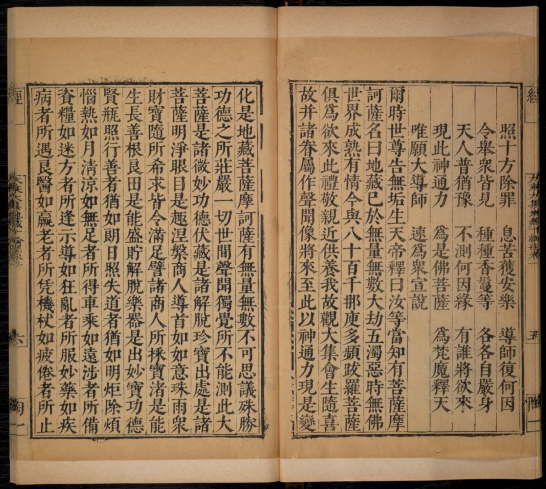 經
五
照十方除罪　息苦獲安樂　導師復何因
令舉衆皆見　種種香鬘等　各各自嚴身
天人普猶豫　不測何因緣　有誰將欲來
現此神通力　爲是佛菩薩　爲梵魔釋天
唯願大導師　速爲衆宣說
爾時世尊告無垢生天帝釋曰汝等當知有菩薩摩
訶薩名曰地藏已於無量無數大劫五濁惡時無佛
世界成熟有情今與八十百千那庾多頻跋羅菩薩
俱爲欲來此禮敬親近供養我故觀大集會生隨喜
故并諸眷屬作聲聞像將來至此以神通力現是變
化是地藏菩薩摩訶薩有無量無數不可思議殊勝
功德之所莊嚴一切世間聲聞獨覺所不能測此大
菩薩是諸微妙功德伏藏是諸解脫珍寶出處是諸
菩薩明淨眼目是趣涅槃商人導首如如意珠雨衆
財寶隨所希求皆令滿足譬諸商人所採寶渚是能
生長善根良田是能盛貯解脫樂器是出妙寶功德
賢瓶照行善者猶如朗日照失道者猶如明炬除煩
惱熱如月清涼如無足者所得車乘如遠涉者所備
資糧如迷方者所逢示導如狂亂者所服妙藥如疾
病者所遇良醫如羸老者所凭机杖如疲倦者所止
經
六